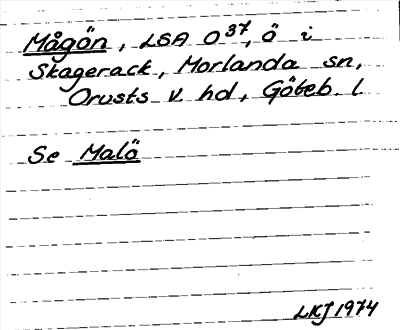 Mågön, LSA O³⁷, ö i
Skagerack, Morlanda sn,
Orusts V. hd, Göteb. l
Se Malö
LKJ 1974